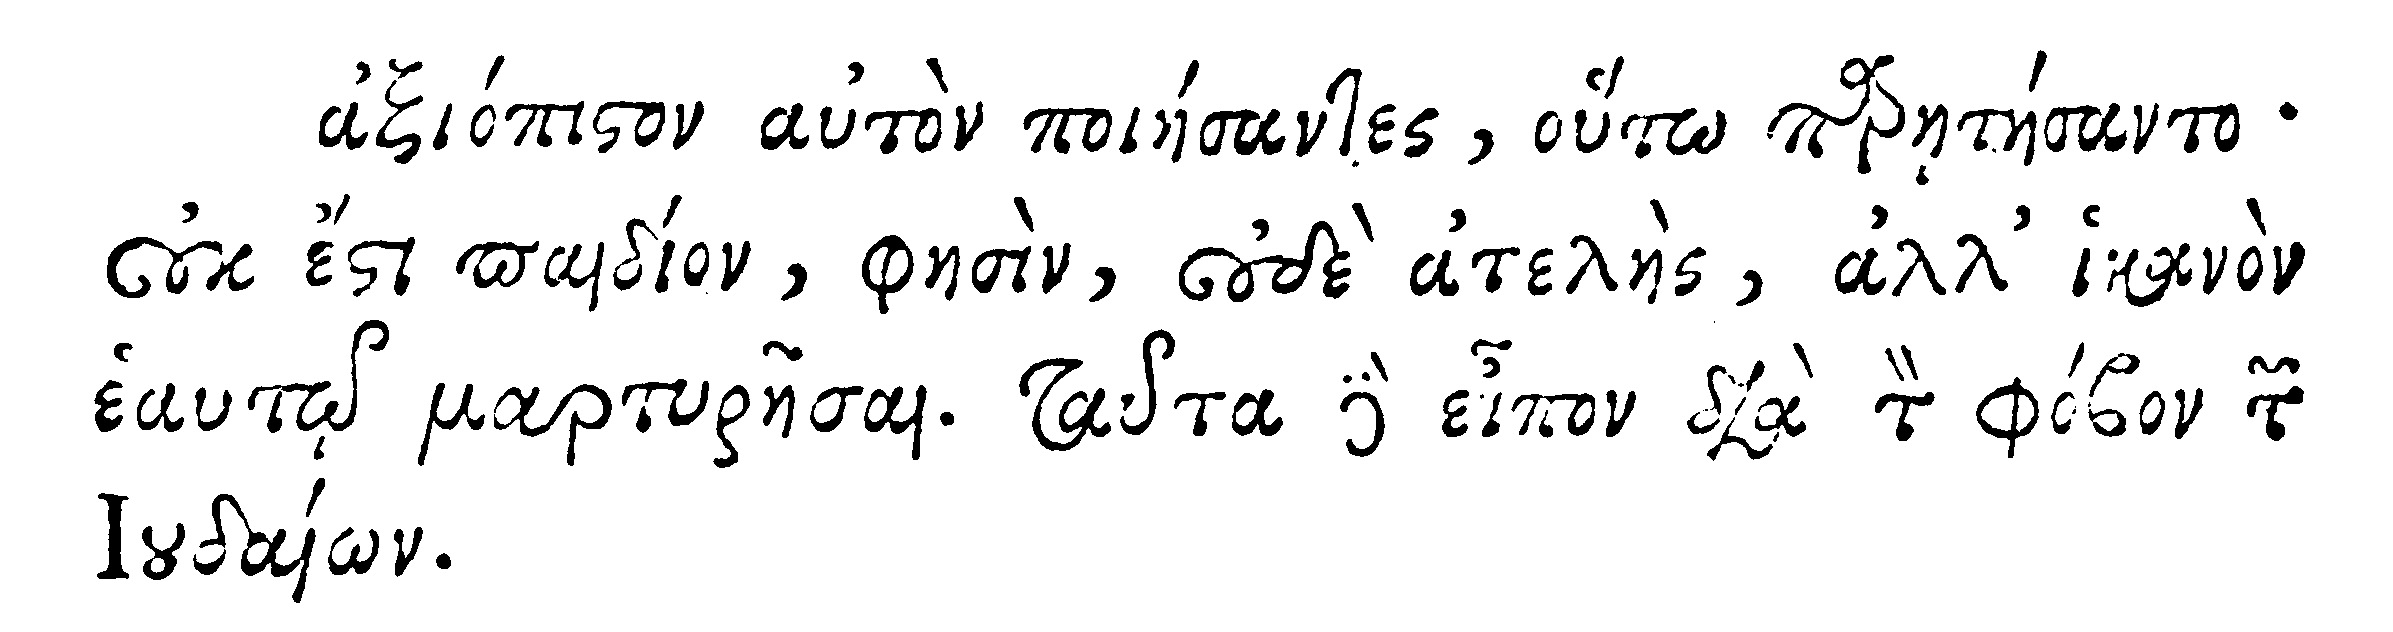 ἀξιόπιστον αὐτὸν ποιήσαντες, οὕτω παρῃτήσαντο·
οὐκ ἔστι παιδίον, φησὶν, οὐδὲ ἀτελὴς, ἀλλ’ ἱκανὸν
ἑαυτῷ μαρτυρῆσαι. Ταῦτα δὲ εἶπον διὰ τὸν φόβον τῶν
Ιουδαίων.